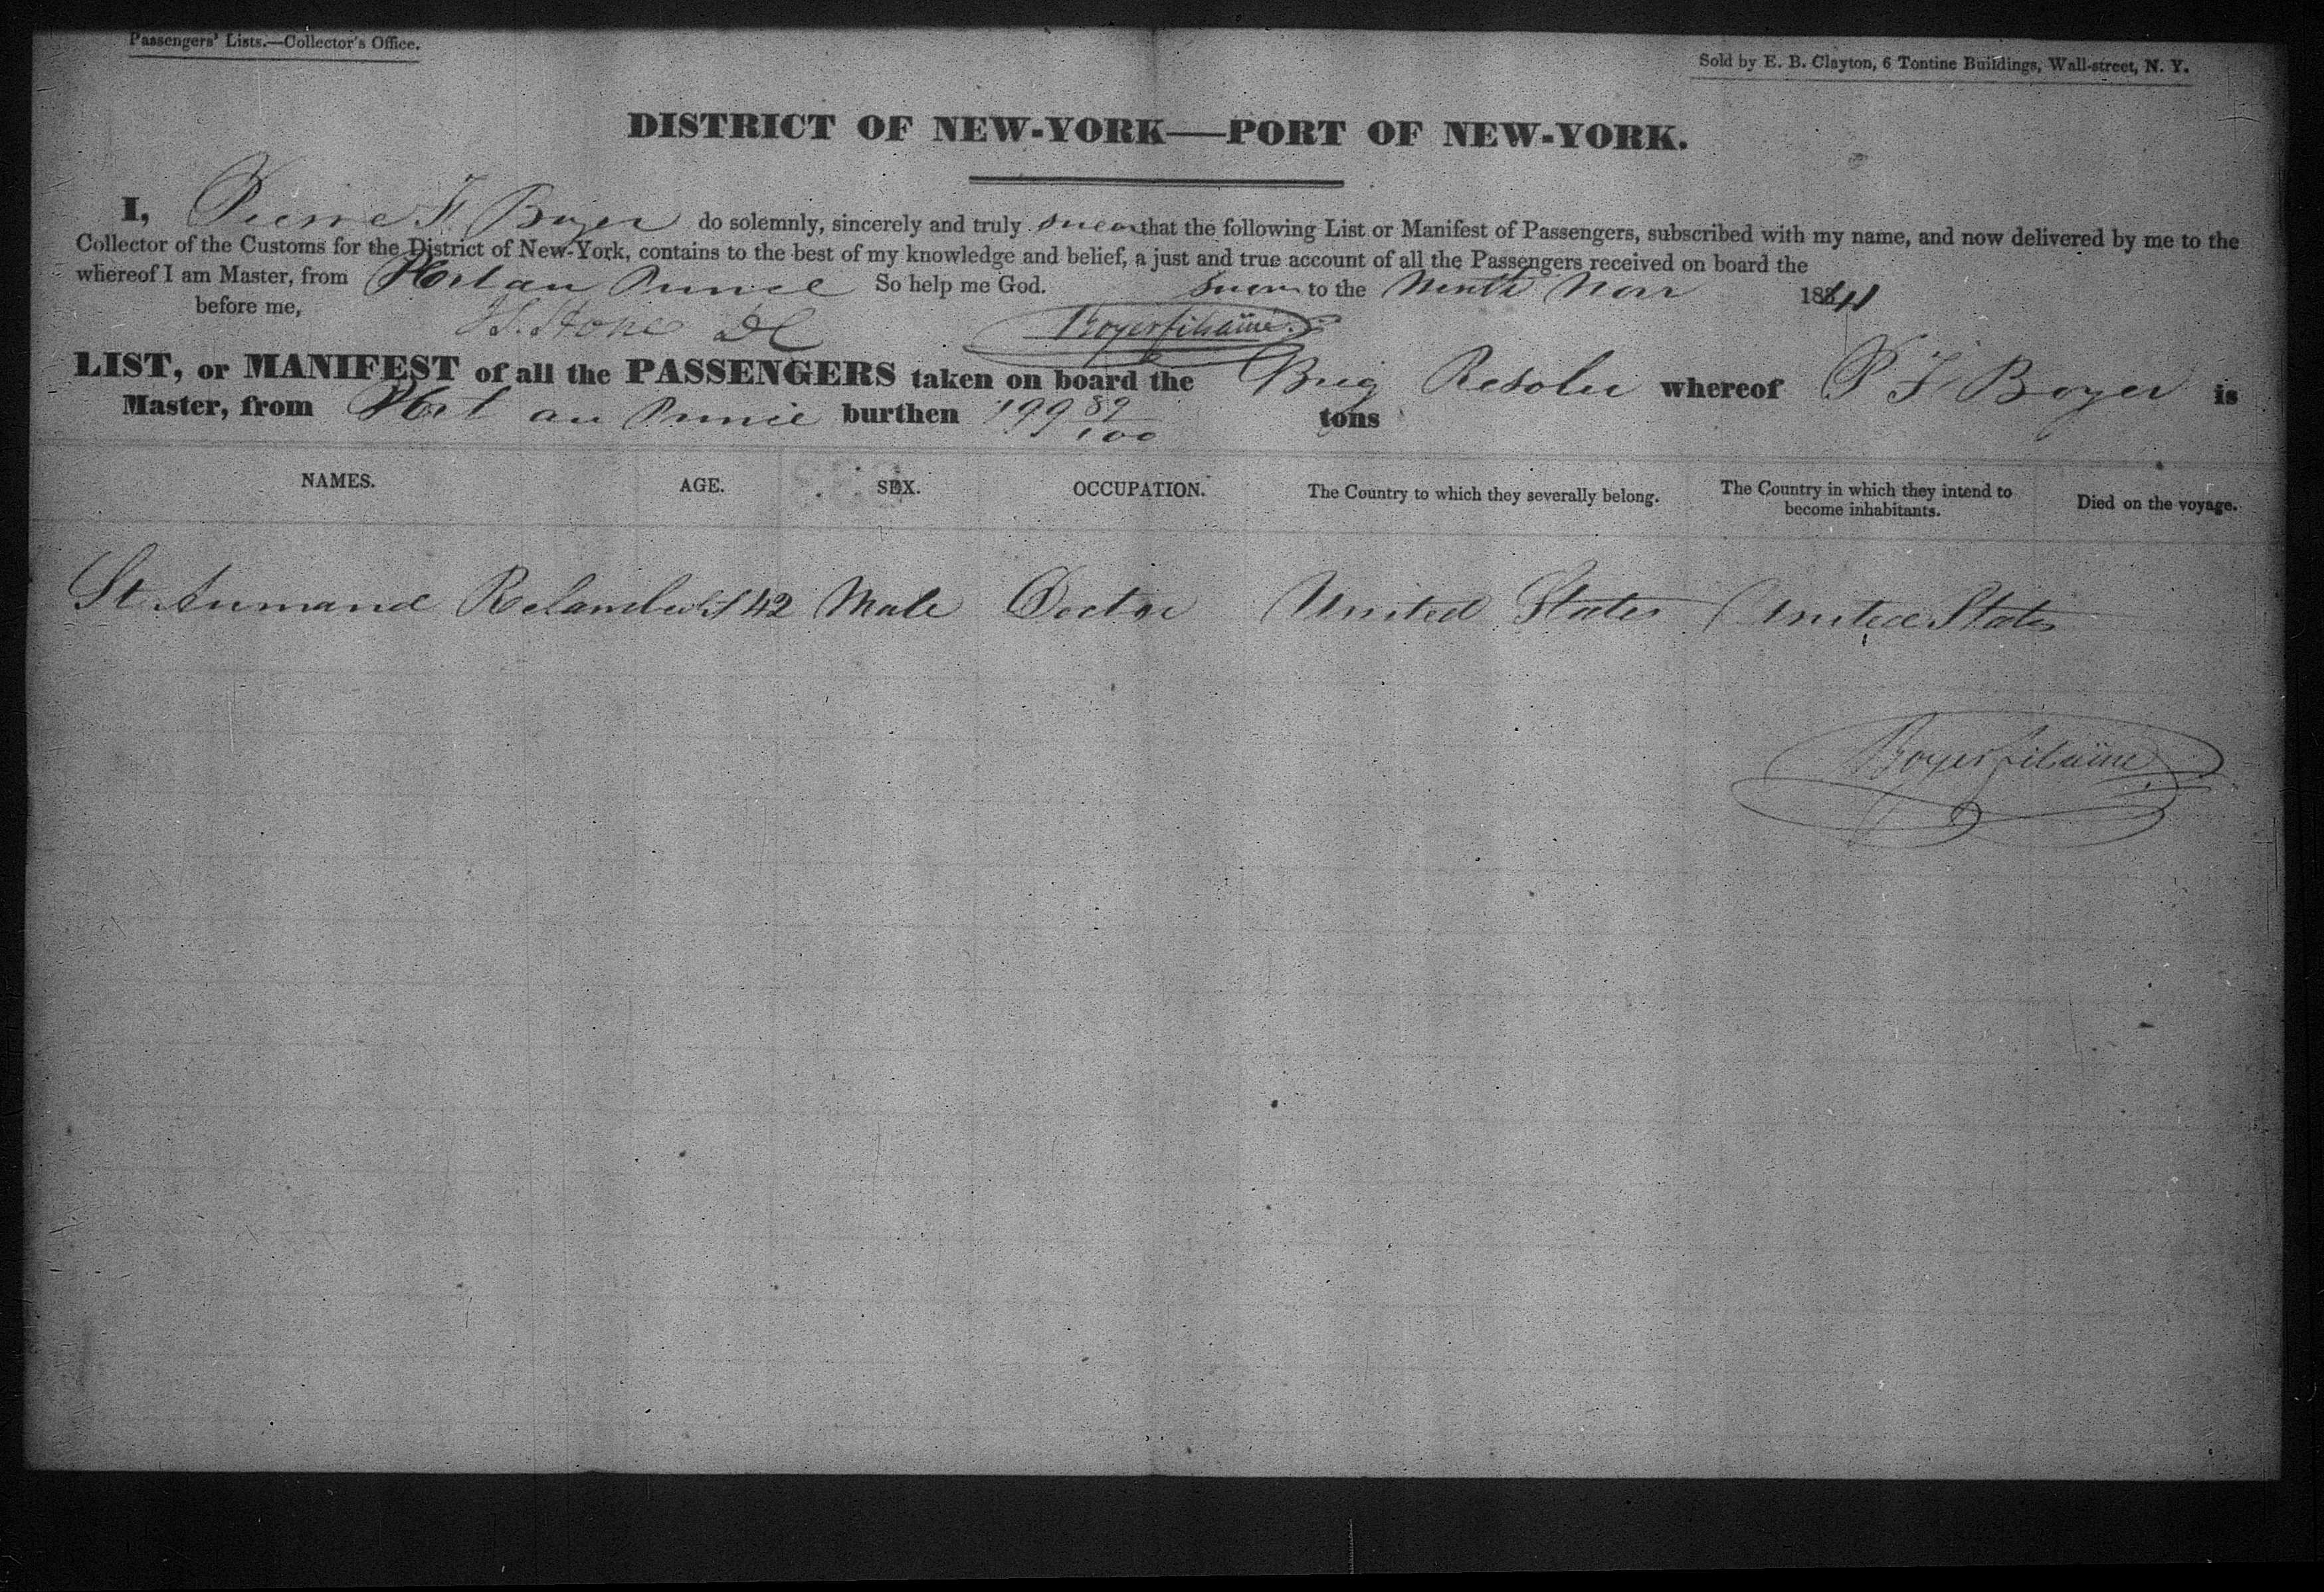 Passengers' Lists.—Collector's Office.
Sold by E. B. Clayton, 6 Tontine Buildings, Wall-street, N. Y.
DISTRICT OF NEW-YORK—PORT OF NEW-YORK.
I, Pierre F. Boyer do solemnly, sincerely and truly swear that the following List or Manifest of Passengers, subscribed with my name, and now delivered by me to the
Collector of the Customs for the District of New-York, contains to the best of my knowledge and belief, a just and true account of all the Passengers received on board the
whereof I am Master, from Port au Prince So help me God. Sworn to the Ninth Novr 1841
before me,
LIST, or MANIFEST of all the PASSENGERS taken on board the Brig whereof P F Boyer is
Master, from Port au Prince burthen 199 89/100 tons
NAMES. AGE. SEX. OCCUPATION. The Country to which they severally belong. The Country in which they intend to become inhabitants. Died on the voyage.
St. Armand 42 Male Doctor United States United States